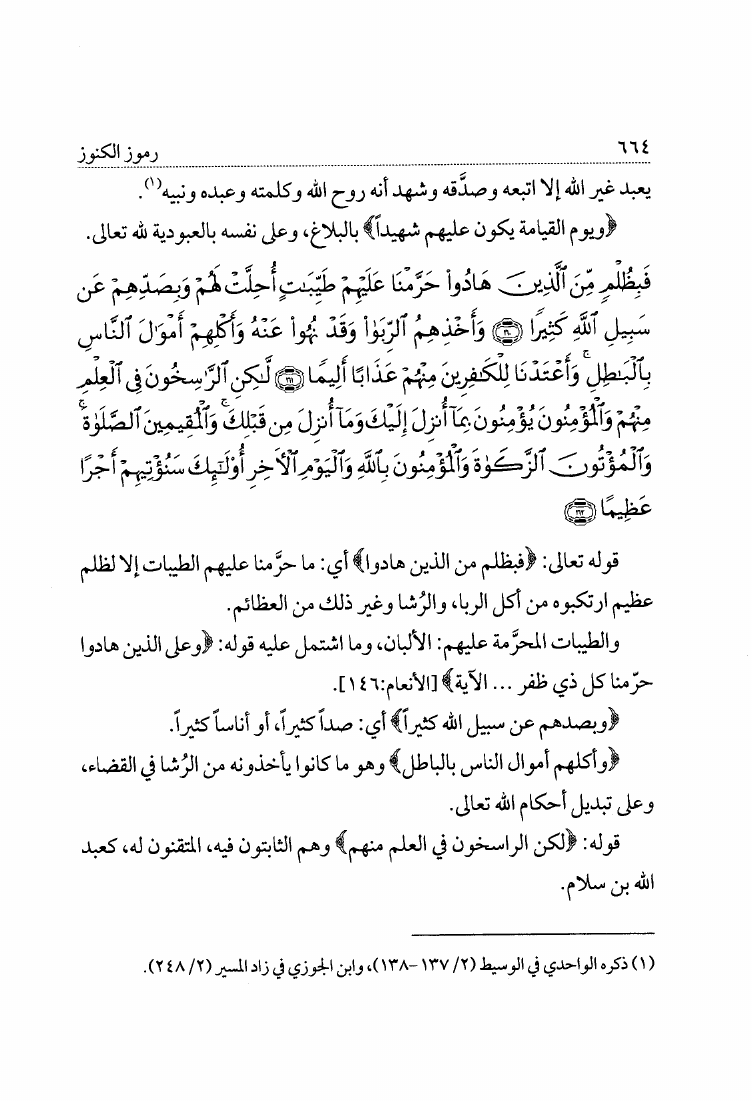 ٦٦٤
رموز الكنوز
يعبد غير الله إلا اتبعه وصدَّقه وشهد أنه روح الله وكلمته وعبده ونبيه(١).
﴿ويوم القيامة يكون عليهم شهيداً﴾ بالبلاغ، وعلى نفسه بالعبودية لله تعالى.
فَبِظُلْمٍ مِّنَ ٱلَّذِينَ هَادُوا۟ حَرَّمْنَا عَلَيْهِمْ طَيِّبَٰتٍ أُحِلَّتْ لَهُمْ وَبِصَدِّهِمْ عَن
سَبِيلِ ٱللَّهِ كَثِيرًا ﴿١٦٠﴾ وَأَخْذِهِمُ ٱلرِّبَوٰا۟ وَقَدْ نُهُوا۟ عَنْهُ وَأَكْلِهِمْ أَمْوَٰلَ ٱلنَّاسِ
بِٱلْبَٰطِلِ ۚ وَأَعْتَدْنَا لِلْكَٰفِرِينَ مِنْهُمْ عَذَابًا أَلِيمًا ﴿١٦١﴾ لَّٰكِنِ ٱلرَّٰسِخُونَ فِى ٱلْعِلْمِ
مِنْهُمْ وَٱلْمُؤْمِنُونَ يُؤْمِنُونَ بِمَآ أُنزِلَ إِلَيْكَ وَمَآ أُنزِلَ مِن قَبْلِكَ ۚ وَٱلْمُقِيمِينَ ٱلصَّلَوٰةَ ۚ
وَٱلْمُؤْتُونَ ٱلزَّكَوٰةَ وَٱلْمُؤْمِنُونَ بِٱللَّهِ وَٱلْيَوْمِ ٱلْأَخِرِ أُو۟لَٰٓئِكَ سَنُؤْتِيهِمْ أَجْرًا
عَظِيمًا ﴿١٦٢﴾
قوله تعالى: ﴿فبظلم من الذين هادوا﴾ أي: ما حرَّمنا عليهم الطيبات إلا لظلم
عظيم ارتكبوه من أكل الربا، والرُشا وغير ذلك من العظائم.
والطيبات المحرَّمة عليهم: الألبان، وما اشتمل عليه قوله: ﴿وعلى الذين هادوا
حرّمنا كل ذي ظفر ... الآية﴾ [الأنعام:١٤٦].
﴿وبصدهم عن سبيل الله كثيراً﴾ أي: صداً كثيراً، أو أناساً كثيراً.
﴿وأكلهم أموال الناس بالباطل﴾ وهو ما كانوا يأخذونه من الرُشا في القضاء،
وعلى تبديل أحكام الله تعالى.
قوله: ﴿لكن الراسخون في العلم منهم﴾ وهم الثابتون فيه، المتقنون له، كعبد
الله بن سلام.
(١) ذكره الواحدي في الوسيط (٢/ ١٣٧ -١٣٨)، وابن الجوزي في زاد المسير (٢/ ٢٤٨).